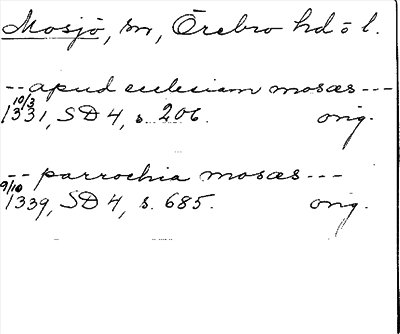 Mosjö, sn, Örebro hd o l.
-- apud ecclesiam mosæs ---
10/3
1331, SD 4, s. 206. orig.
-- parrochia mosæs ---
9/10
1339, SD 4, s. 685. orig.